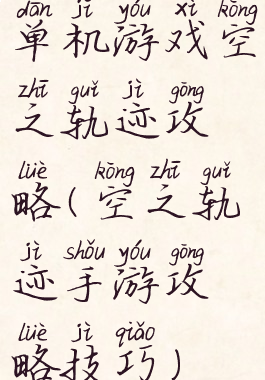 dān jī yóu xì kōng
单机游戏空
zhī guǐ jì gōng
之轨迹攻
lüè kōng zhī guǐ
略(空之轨
jì shǒu yóu gōng
迹手游攻
lüè jì qiǎo
略技巧)